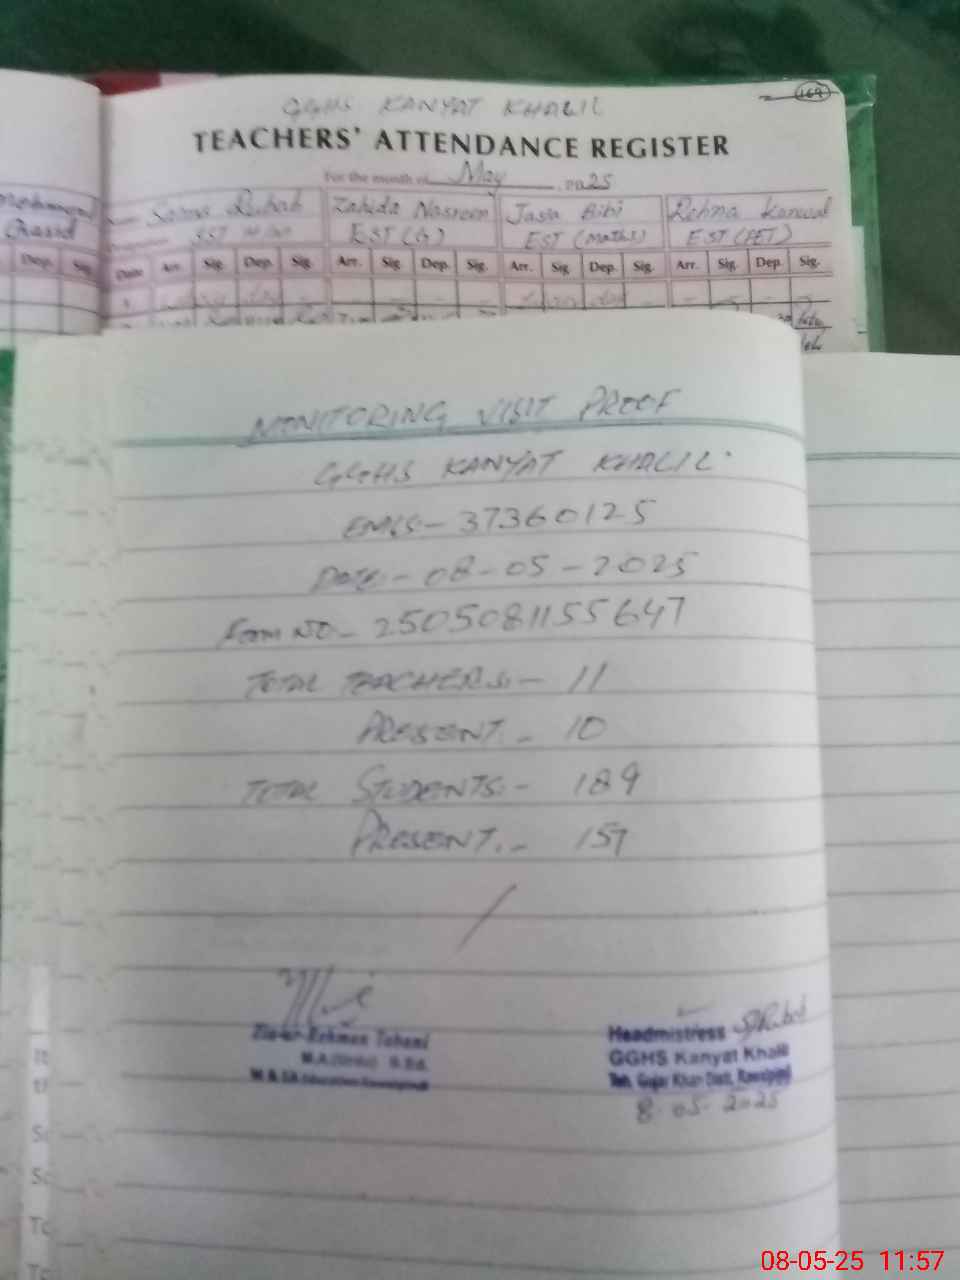 GGHS KANYAT KHALIL
169
TEACHERS' ATTENDANCE REGISTER
For the month of May 2025
Rashid
Saima Rubab
Zahida Nasreen
Jasia Bibi
Rehna Kanwal
EST (G)
EST (Maths)
EST (PET)
Dep. Sig.
Date Arr. Sig. Dep. Sig. Arr. Sig. Dep. Sig. Arr. Sig. Dep. Sig. Arr. Sig. Dep. Sig.
MONITORING VISIT PROOF
GGHS KANYAT KHALIL.
EMIS:- 37360125
DATE:- 08-05-2025
Form NO- 2505081155647
TOTAL TEACHERS:- 11
PRESENT.- 10
TOTAL STUDENTS:- 189
PRESENT.- 157
Zia-ur-Rehman Tabani
M.A (Urdu) B.Ed.
M & EA Education Rawalpindi
Headmistress
GGHS Kanyat Khalil
Teh. Gujar Khan Distt. Rawalpindi
8-05-2025
08-05-25 11:57